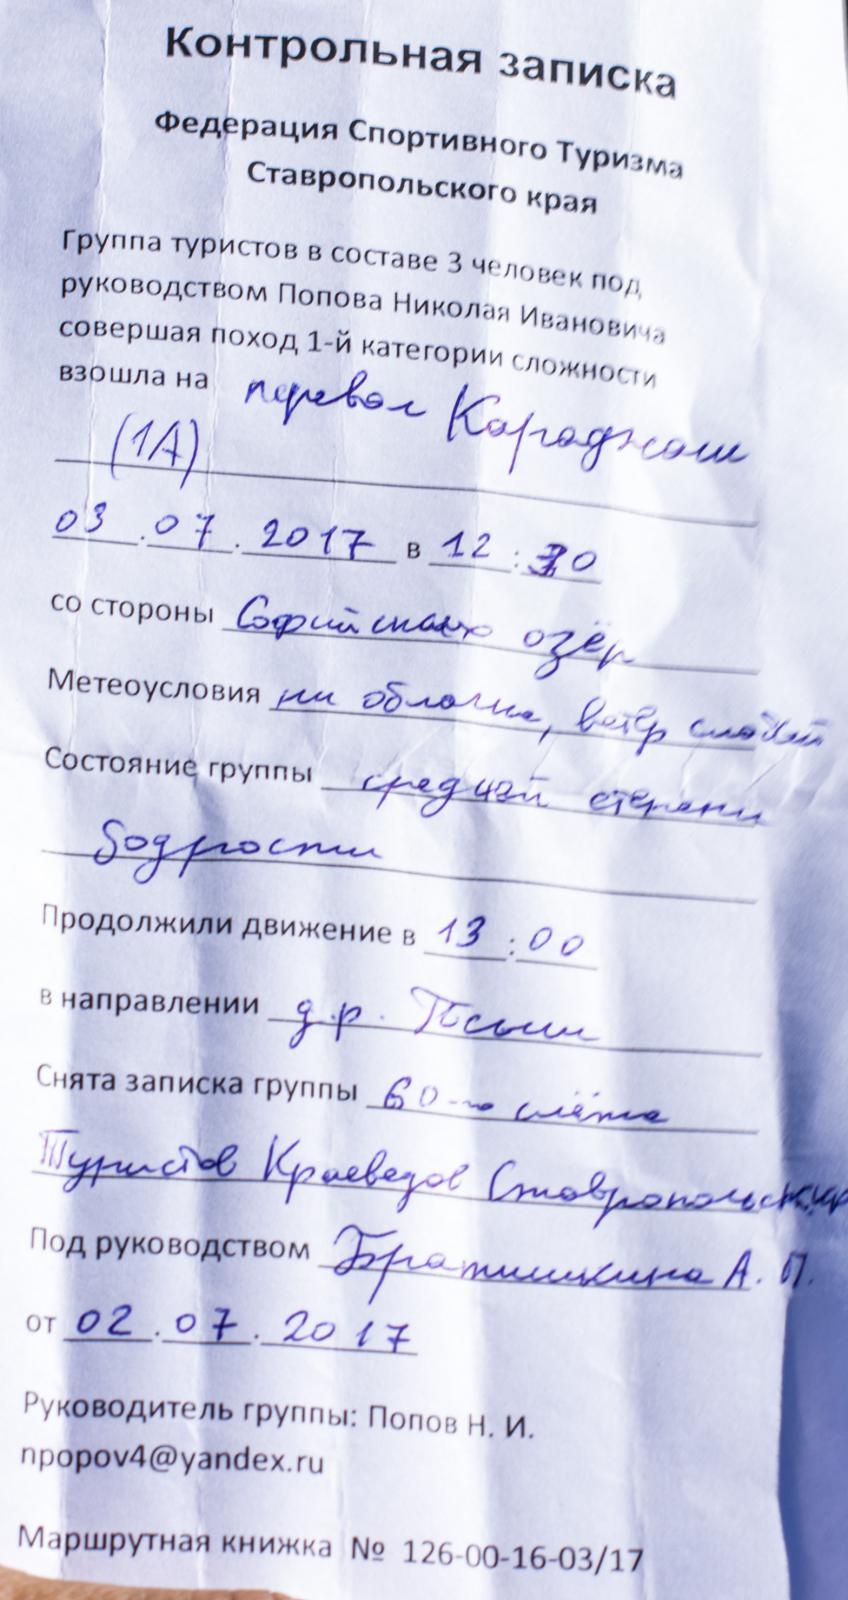 Контрольная записка
Федерация Спортивного Туризма
Ставропольского края
Группа туристов в составе 3 человек под
руководством Попова Николая Ивановича
совершая поход 1-й категории сложности
взошла на перевал Караджаш
(1А)
03.07.2017 в 12:30
со стороны Софийских озёр
Метеоусловия ни облачка, ветер слабый
Состояние группы средней степени
бодрости
Продолжили движение в 13:00
в направлении д.р. Псыш
Снята записка группы 60-го слёта
Туристов Краеведов
Под руководством Братишкина А. П.
от 02.07.2017
Руководитель группы: Попов Н. И.
npopov4@yandex.ru
Маршрутная книжка № 126-00-16-03/17